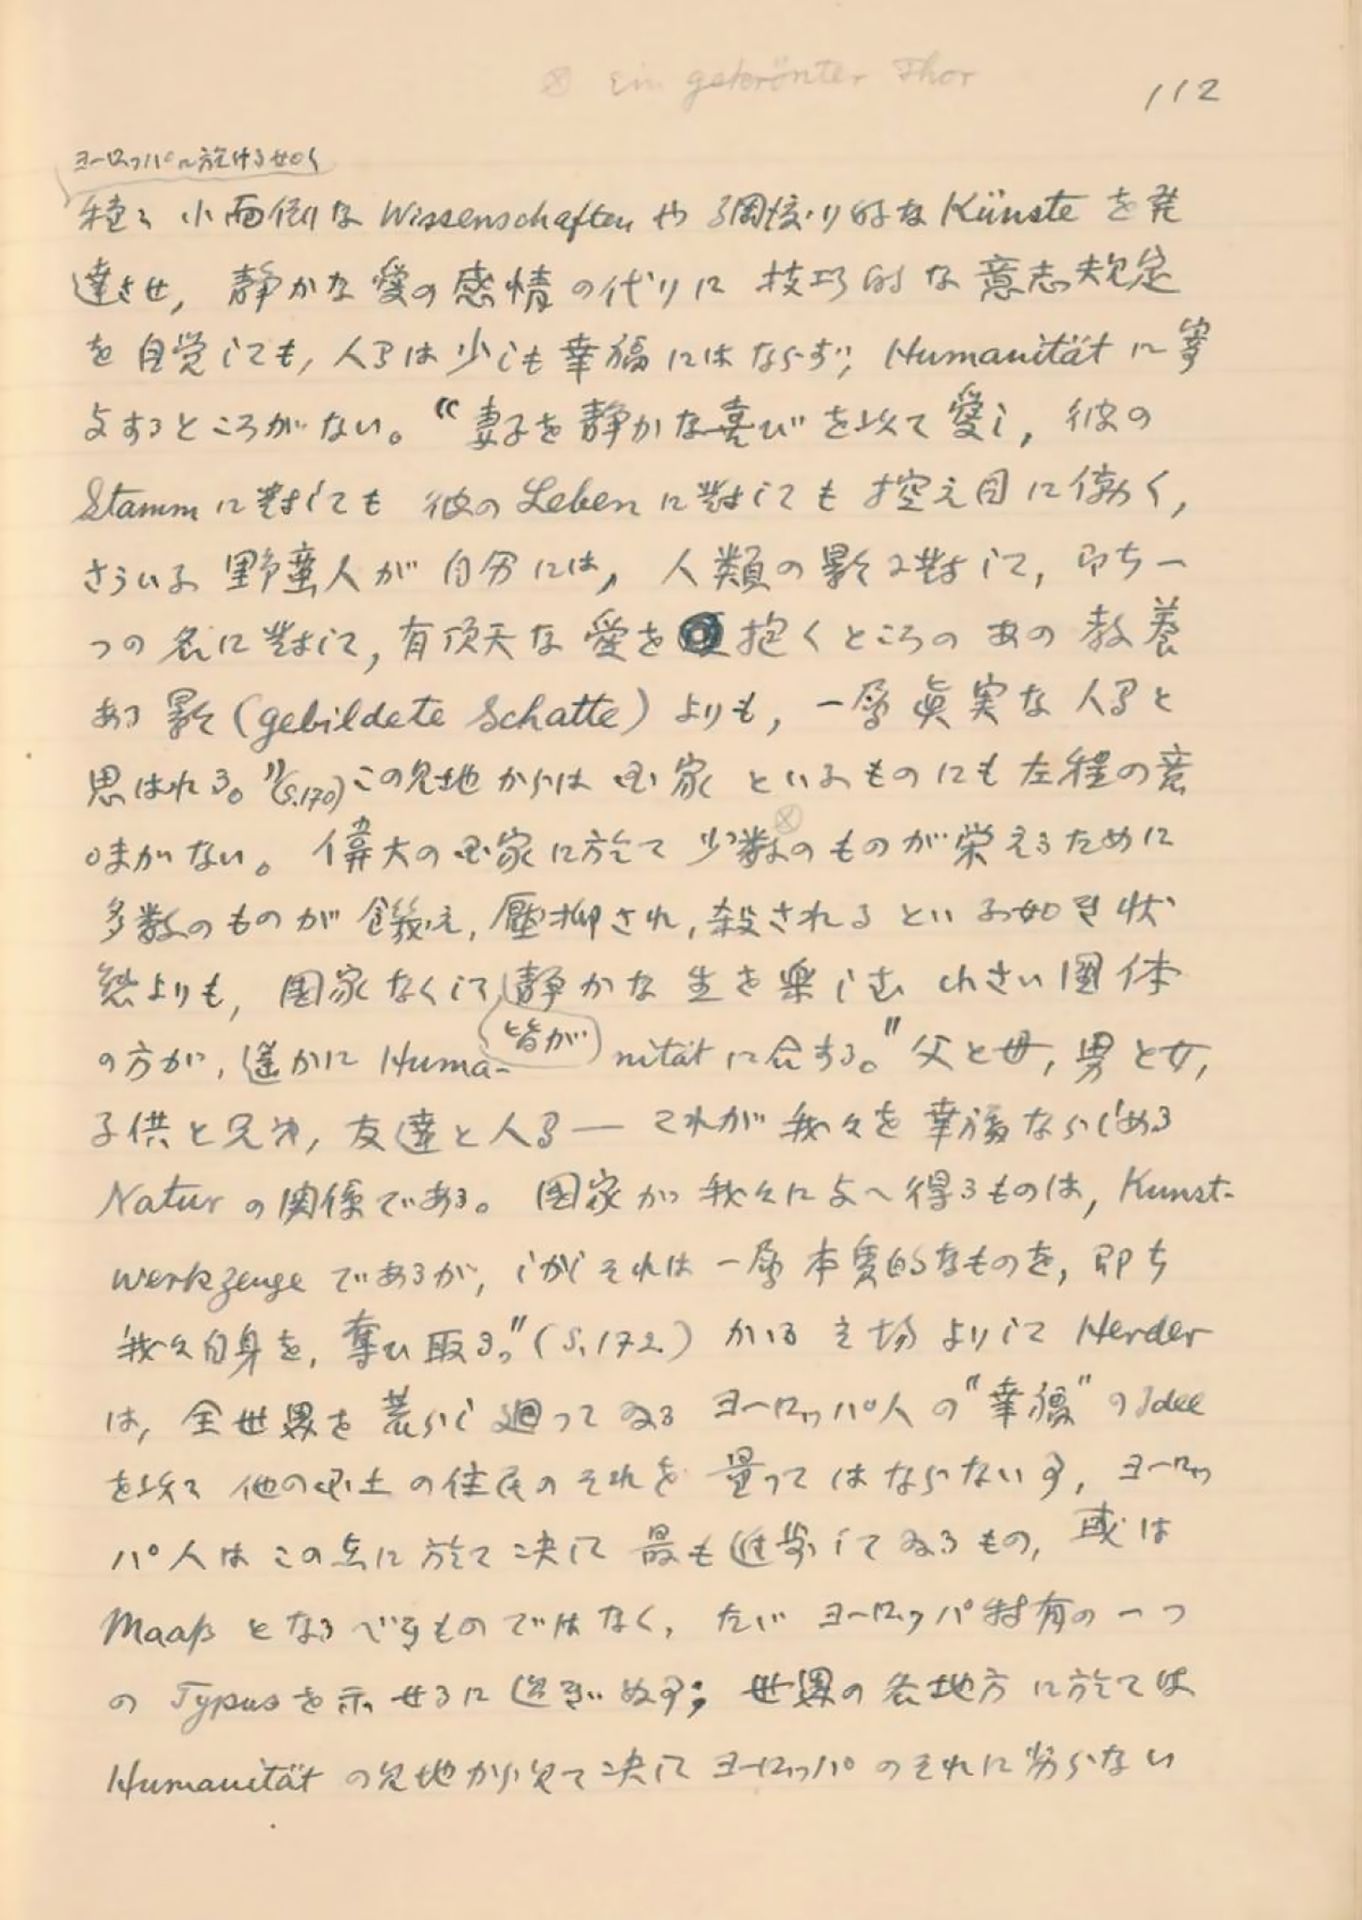 ⊗ Ein gekrönter Thor
112
ヨーロッパに於ける如く
種々小面倒なWissenschaftenや頽廃的なKünsteを発
達させ, 静かな愛の感情の代りに技巧的な意志規定
を自覚しても, 人間は少しも幸福にはならず; Humanitätに寄
与するところがない。“妻子を静かな喜びを以て愛し, 彼の
Stammに對しても彼のLebenに對しても控え目に働く,
さういふ野蛮人が自分には, 人類の影に對して, 即ち一
つの名に對して, 有頂天な愛を抱くところのあの教養
ある影 (gebildete Schatte) よりも, 一層眞実な人間と
思はれる。”(S.170) この見地からは国家といふものにも左程の意
味がない。偉大の国家に於て少数⊗のものが栄えるために
多数のものが餓え, 壓抑され, 殺されるといふ如き状
態よりも, 国家なくして静かな生を楽しむ小さい團体
皆が
の方が, 遙かにHuma-nitätに合する。”父と母, 男と女,
子供と兄弟, 友達と人間 — これが我々を幸福ならしめる
Naturの関係である。国家が我々に与へ得るものは, Kunst-
werkzeugeであるが, しかしそれは一層本質的なものを, 即ち
我々自身を, 奪ひ取る。”(S.172) かゝる立場よりしてHerder
は, 全世界を荒らし廻ってゐるヨーロッパ人の“幸福”のIdee
を以て他の国土の住民のそれを量ってはならないす, ヨーロッ
パ人はこの点に於て決して最も進歩してゐるもの, 或は
Maaßとなるべきものではなく, たゞヨーロッパ特有の一つ
のTypusを示せるに過ぎぬす; 世界の各地方に於ては
Humanitätの見地から見て決してヨーロッパのそれに劣らない